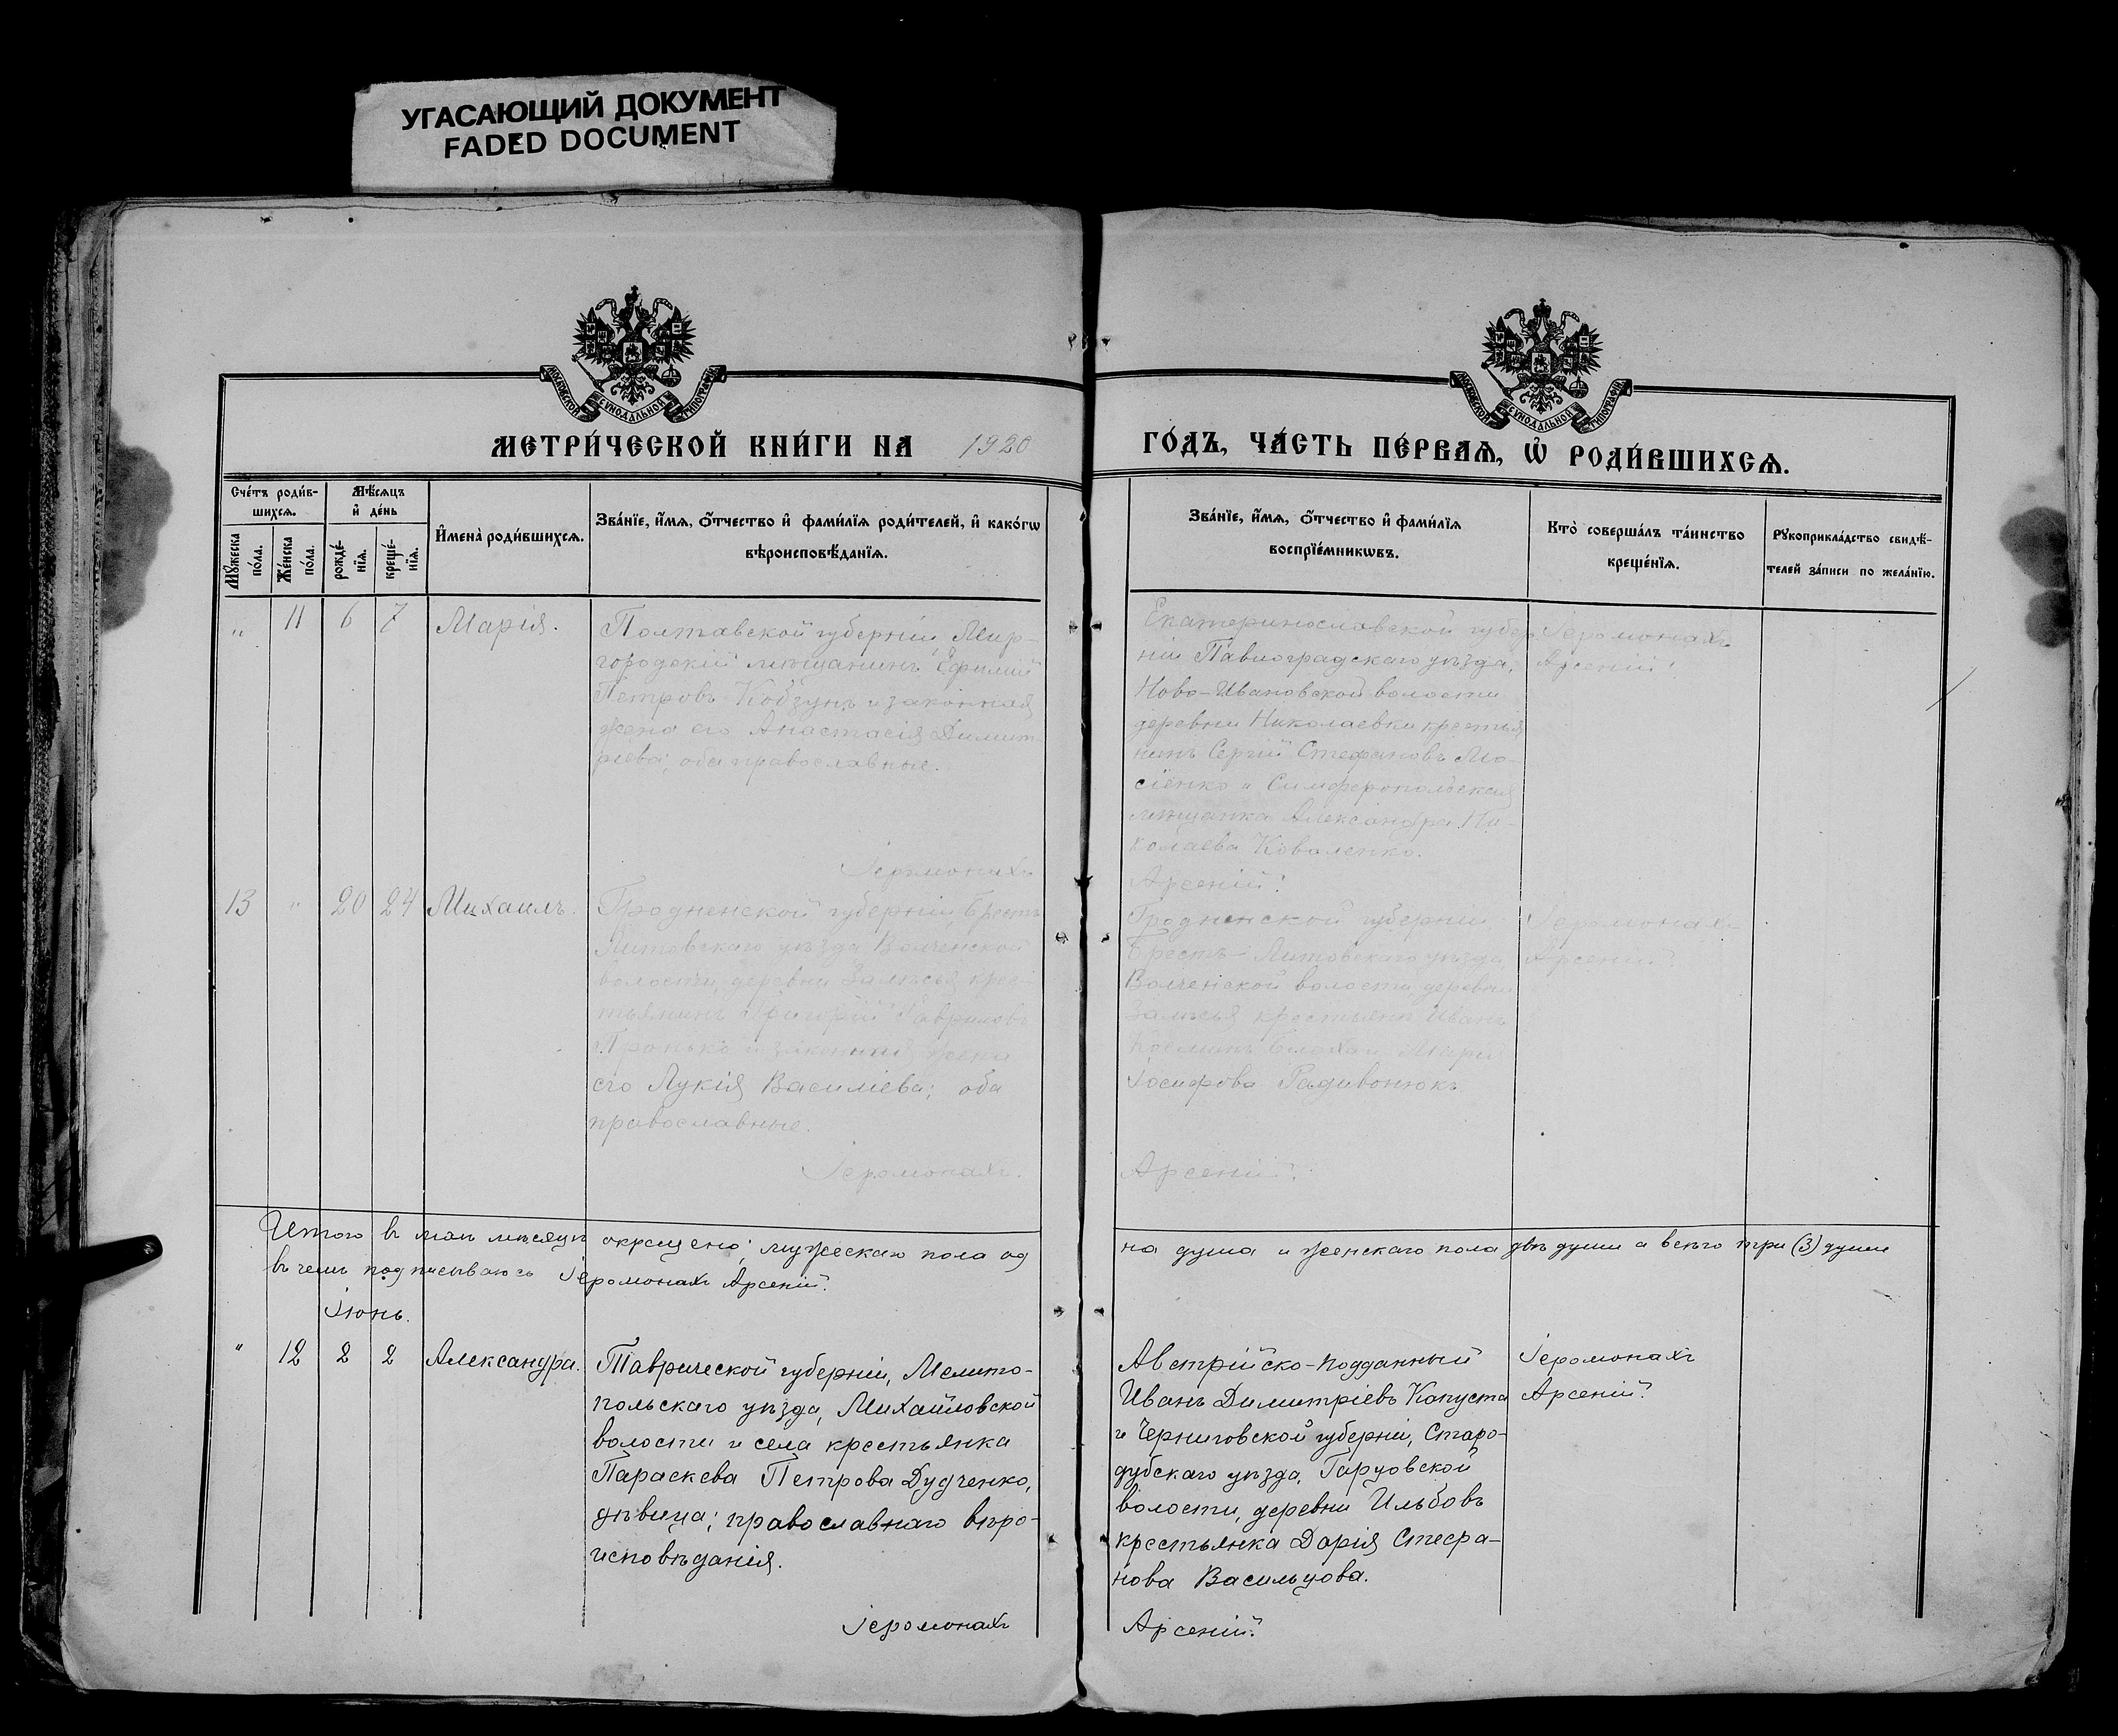 УГАСАЮЩИЙ ДОКУМЕНТ
FADED DOCUMENT
МОСКОВСКОЙ СѴНОДАЛЬНОЙ ТИПОГРАФІИ
МОСКОВСКОЙ СѴНОДАЛЬНОЙ ТИПОГРАФІИ
МЕТРИ́ЧЕСКОЙ КНИ́ГИ НА 1920 ГО́ДЪ, ЧА́СТЬ ПЕ́РВАѦ, Ѽ РОДИ́ВШИХСѦ.
Сче́тъ роди́в-
шихсѧ.
Мѣ́сѧцъ
и҆ де́нь
Мꙋ́жеска
по́ла.
Же́нска
по́ла.
рожде́-
нїѧ.
креще́-
нїѧ.
И҆мена̀ роди́вшихсѧ.
Зва́нїе, и҆́мѧ, ѻ҆́тчество и҆ фами́лїѧ роди́телей, и҆ како́гѡ
вѣроисповѣ́данїѧ.
Зва́нїе, и҆́мѧ, ѻ҆́тчество и҆ фами́лїѧ
воспрїе́мникѡвъ.
Кто̀ соверша́лъ та́инство
креще́нїѧ.
Рꙋкоприкла́дство свидѣ́-
телей за́писи по жела́нїю.
„ 11 6 7 Марія.
Полтавской губерніи, Мир-
городскій мѣщанинъ Ефимій
Петровъ Кобзунъ и законная
жена его Анастасія Димит-
ріева; оба православные.
Іеромонахъ
Екатеринославской губер-
ніи Павлоградскаго уѣзда,
Ново-Ивановской волости
деревни Николаевки крестья-
нинъ Сергій Стефановъ Мо-
сіенко и Симферопольская
мѣщанка Александра Ни-
колаева Коваленко.
Арсеній.
Іеромонахъ
Арсеній.
13 „ 20 24 Михаилъ.
Гродненской губерніи, Брестъ
Литовскаго уѣзда Волченской
волости, деревни Залѣсья крес-
тьянинъ Григорій Гавриловъ
Пронько и законная жена
его Лукія Василіева; оба
православные.
Іеромонахъ.
Гродненской губерніи
Брестъ-Литовскаго уѣзда
Волченской волости деревни
Залѣсья крестьяне Иванъ
Марія
Іосифова Радивонюкъ.
Арсеній.
Іеромонахъ
Арсеній.
Итого в маѣ мѣсяцѣ окрещено; мужескаго пола од
на душа и женскаго пола двѣ души а всего три (3) души
въ чемъ подписываюсь Іеромонахъ Арсеній.
Іюнь.
„ 12 2 2 Александра.
Таврической губерніи, Мелито-
польскаго уѣзда, Михайловской
волости и села крестьянка
Параскева Петрова Дудченко,
дѣвица; православнаго вѣро-
исповѣданія.
Іеромонахъ
Австрійско-подданный
Иванъ Димитріевъ Капуста
и Черниговской губерніи, Старо-
дубскаго уѣзда, Гарцовской
волости, деревни Ильбовъ
крестьянка Дарія Стефа-
нова Васильцова.
Арсеній.
Іеромонахъ
Арсеній.